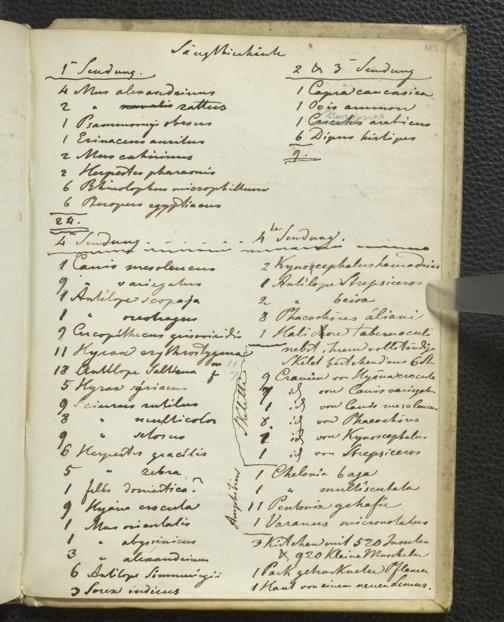 Säugthierhäute
1 Sendung.
4 Mus alexandrinus
2 " rattus
1 Psammomys obesus
1 Erinaceus auritus
2 Mus cahirinus
2 Herpestes pharaonis
6 Rhinolophus microphillum
6 Pteropus egyptiacus
24.
2 & 3 Sendung
1 Capra caucasica
1 Ovis ammon
1 arabicus
6 Dipus hirtipes
9.
4 Sendung
1 Canis mesoleucus
9 " variegatus
1 Antilope Scopaja
1 " oreotragus
9 Cercopithecus griseoviridis
11 Hyrax erythrotygma
18 Antilope Saltiana
5 Hyrax syriacus
9 Sciurus rutilus
8 " multicolor
9 " setosus
6 Herpestes gracilis
5 " zebra
1 felis domestica?
9 Hyäna crocuta
1 Mus orientalis
1 " abyssinicus
3 " alexandrinus
6 Antilope Sömmeringii
3 Sorex indicus
4te Sendung.
2 Kynocephalus hamadrias
1 Antilope Strepsiceros
2 " beisa
8 Phacochöres aliani
1 Halicore tabernaculi
nebst ihrem vollständig
Skelet
Skelette
9 Cranien von Hyäna crocuta
7 id von Canis variegatus
1 id von Canis mesoleucus
8. id von Phacochörus
1 id von Kynocephalus
1 id von Strepsiceros
Amphibien
1 Chelonia
1 " multiscutata
11 Pentonix gehafie
1 Varanus
3 Kistchen mit 520 Insecten
& 920 Kleine Muscheln
1 Pack getrockneter Pflanzen
1 Haut von einem neuen Lemur.